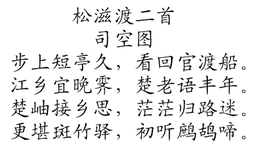 松滋渡二首
司空图
步上短亭久，看回官渡船。
江乡宜晚霁，楚老语丰年。
楚岫接乡思，茫茫归路迷。
更堪斑竹驿，初听鹧鸪啼。